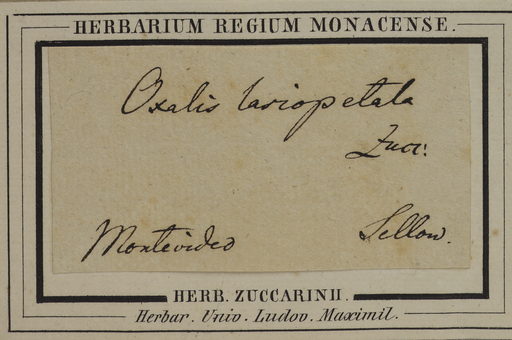 HERBARIUM REGIUM MONACENSE.
Oxalis lasiopetala
Zucc:
Montevideo
Sellow.
HERB. ZUCCARINII.
Herbar. Univ. Ludov. Maximil.